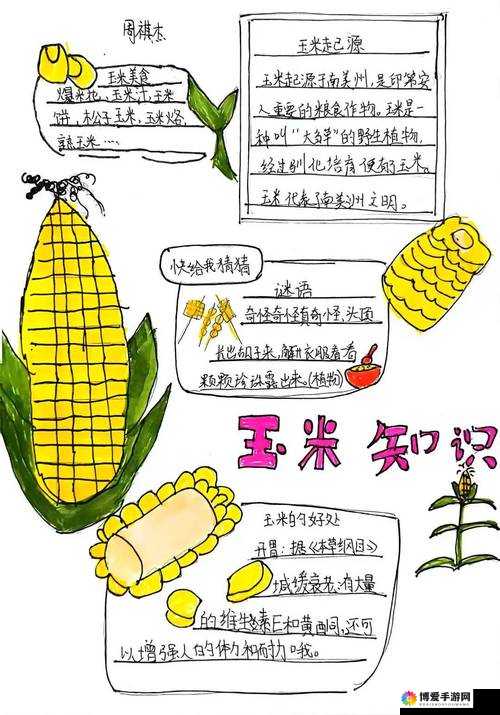 周祺杰
玉米美食
爆米花、玉米汁、玉米
饼,松子玉米,玉米烙
蒸玉米…
玉米起源
玉米起源于南美州,是印第安
人重要的粮食作物。玉米是一
种叫“大刍草”的野生植物,
经过驯化培育便有了玉米。
玉米代表了南美洲文明。
快给我猜猜
谜语
奇怪奇怪真奇怪、头顶
长出胡子来,解开衣服看看
颗颗珍珠露出来。(植物)
玉米知识
玉米的好处
开胃:据《本草纲目》
减缓衰老:有大量
的维生素E和黄酮,还可
以增强人的体力和耐力哦。
博爱手游网
WWW.BOAILW.COM